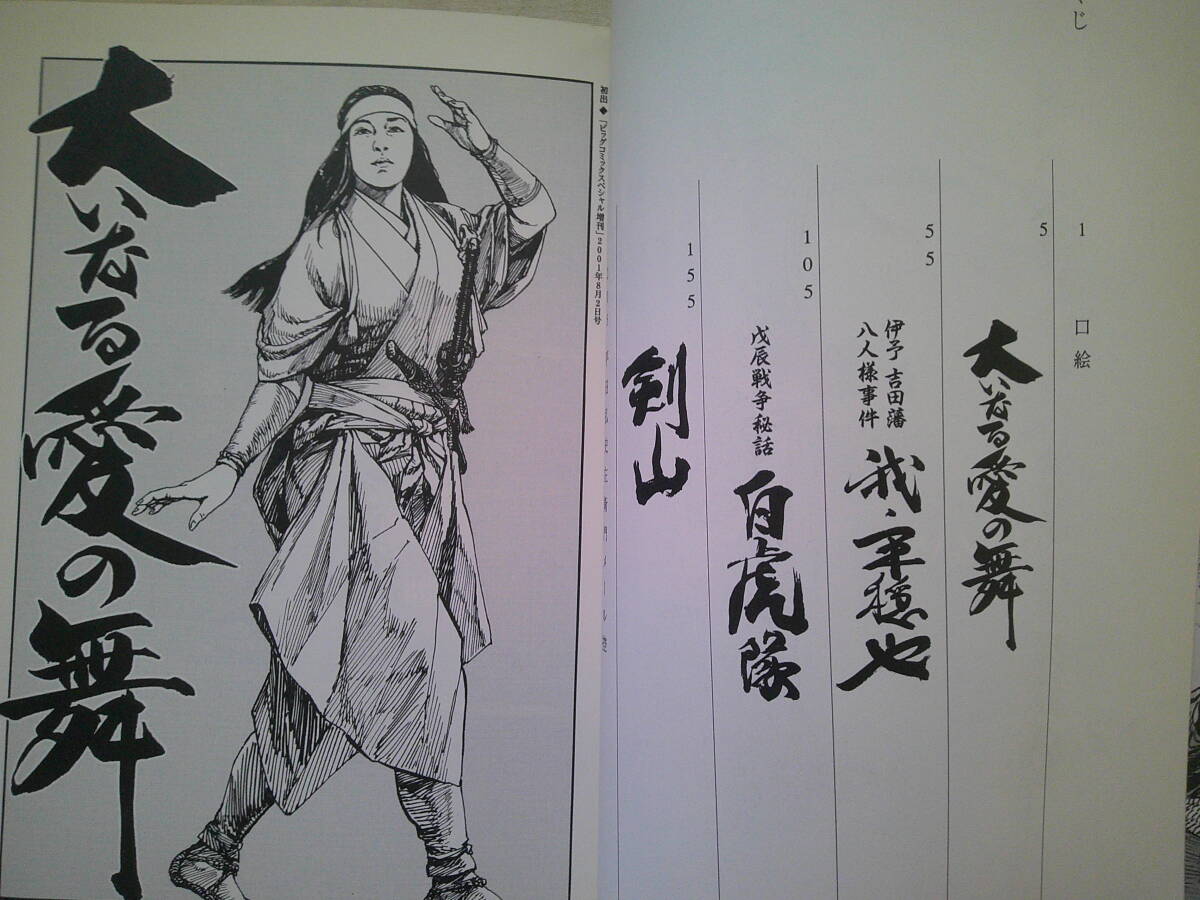 くじ
1 口絵
5
大いなる愛の舞
55
伊予 吉田藩
八人様事件
我、平穏也
105
戊辰戦争秘話
白虎隊
155
剣山
初出◆「ビッグコミックスペシャル増刊」2001年8月2日号
大いなる愛の舞